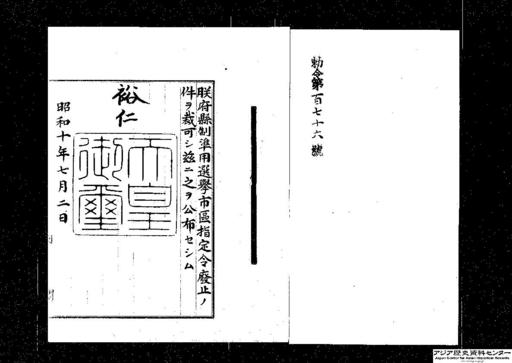 勅令第百七十六號
朕府縣制準用選擧市區指定令廢止ノ
件ヲ裁可シ玆ニ之ヲ公布セシム
裕仁
天皇
御璽
昭和十年七月二日
アジア歴史資料センター
Japan Center for Asian Historical Records